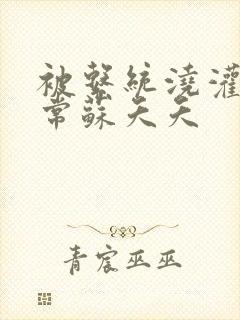 被繫統澆灌
常蘇天天
青宸巫巫